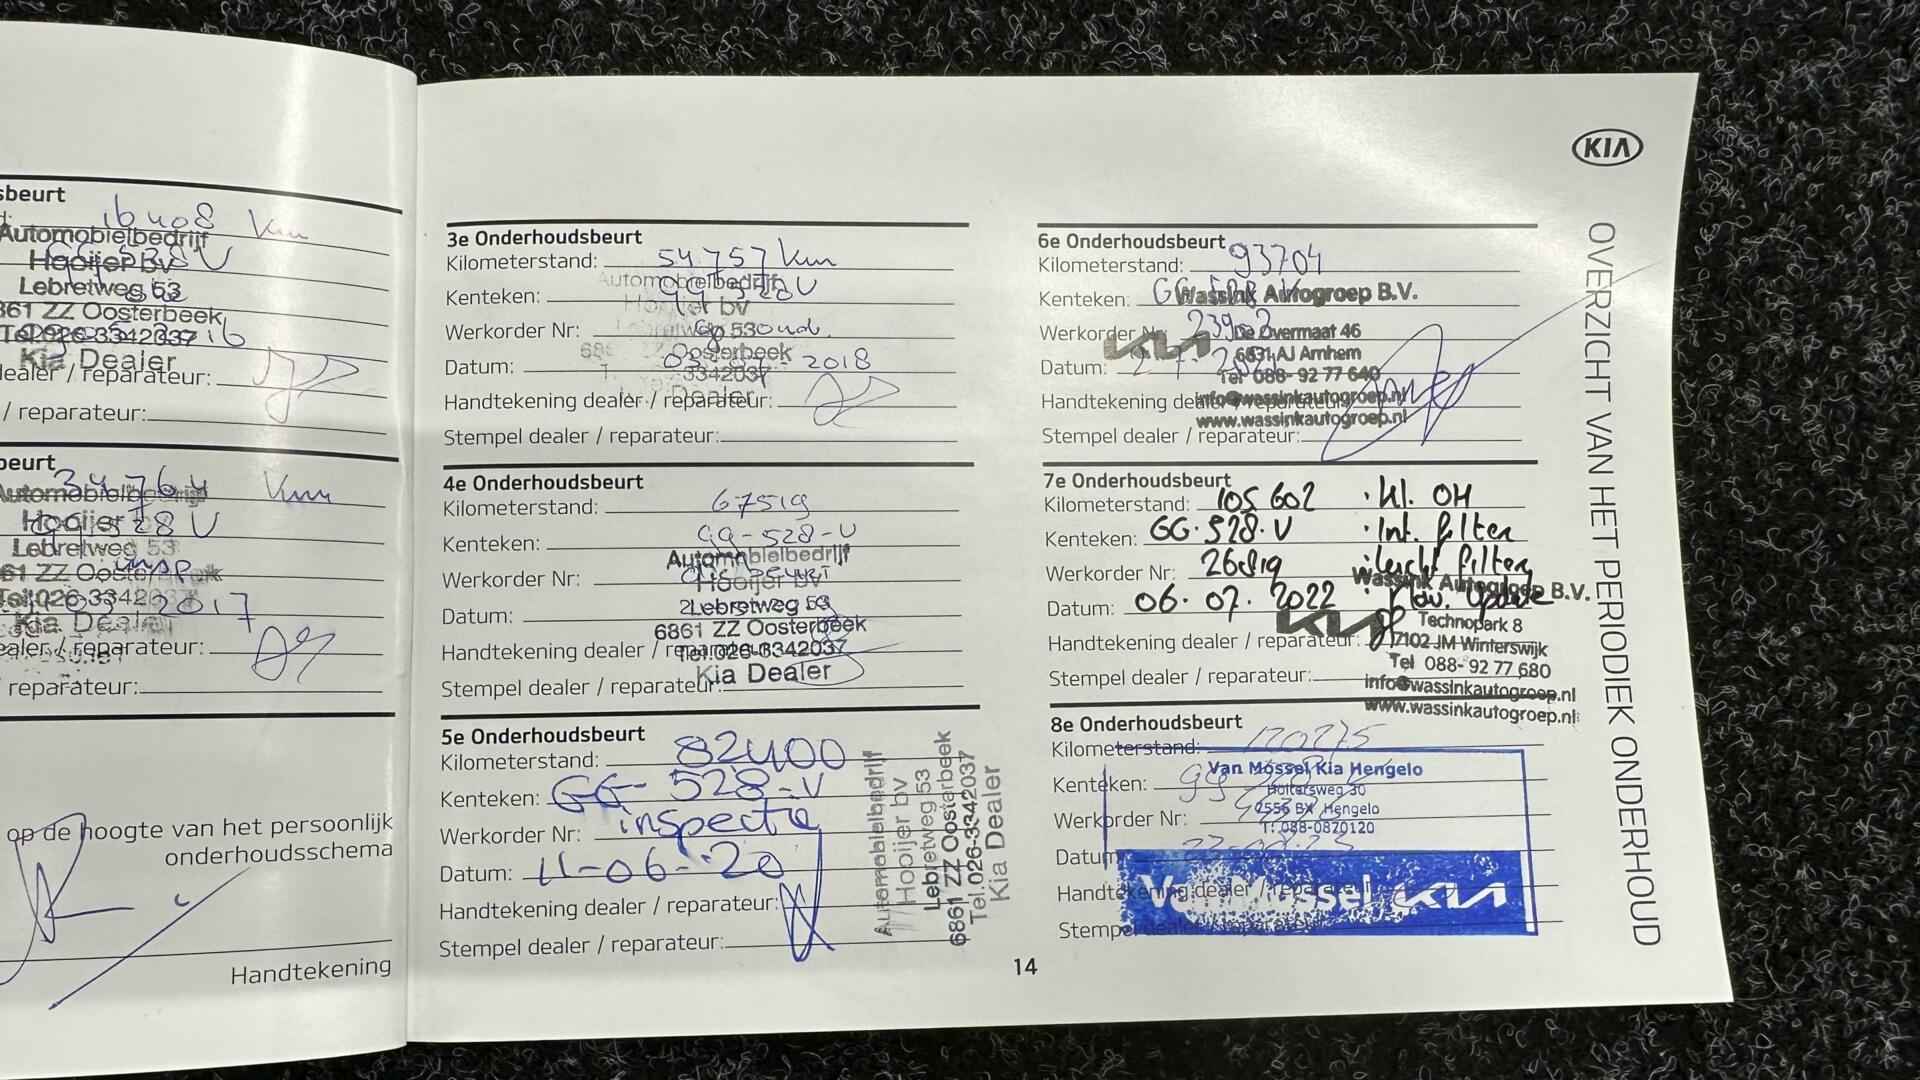 sbeurt
16408 Km
Automobielbedrijf
Hooijer bv
Lebretweg 53
861 ZZ Oosterbeek
Tel.026-3342037
Kia Dealer
dealer / reparateur:
/ reparateur:
beurt
34764 Km
Automobielbedrijf
Hooijer
528 U
Lebretweg 53
insp
61 ZZ Oosterbeek
Tel.026-3342037
2017
Kia Dealer
ealer / reparateur:
reparateur:
op de hoogte van het persoonlijk
onderhoudsschema
Handtekening
3e Onderhoudsbeurt
Kilometerstand: 54757 Km
Automobielbedrijf
Kenteken: GG 528 U
Hooijer bv
Werkorder Nr: Gp oud.
Lebretweg 53
686 ZZ Oosterbeek
Datum: 2018
3342037
Handtekening dealer / reparateur:
Dealer
Stempel dealer / reparateur:
4e Onderhoudsbeurt
Kilometerstand: 67519
Kenteken: GG-528-U
Automobielbedrijf
Werkorder Nr: beurt
Hooijer bv
Datum:
Lebretweg 53
6861 ZZ Oosterbeek
Handtekening dealer / reparateur:
Tel.026-3342037
Kia Dealer
Stempel dealer / reparateur:
5e Onderhoudsbeurt
Kilometerstand: 82400
Kenteken: GG-528-V
Werkorder Nr: inspectie
Datum: 11-06-20
Handtekening dealer / reparateur:
Stempel dealer / reparateur:
Automobielbedrijf
Hooijer bv
Lebretweg 53
6861 ZZ Oosterbeek
Tel.026-3342037
Kia Dealer
14
6e Onderhoudsbeurt
Kilometerstand: 93704
Kenteken: GG 528 V
Wassink Autogroep B.V.
Werkorder Nr: 23902
De Overmaat 46
KIA
6831 AJ Arnhem
Datum:
Tel 088- 92 77 640
Handtekening dealer / reparateur:
info@wassinkautogroep.nl
www.wassinkautogroep.nl
Stempel dealer / reparateur:
7e Onderhoudsbeurt
Kilometerstand: 105 602 · kl. OH
Kenteken: GG·528·V · Int. filter
Werkorder Nr: 26819 · lucht filter
Wassink Autogroep B.V.
Datum: 06. 07. 2022 · Update
KIA
Technopark 8
Handtekening dealer / reparateur:
7102 JM Winterswijk
Tel 088- 92 77 680
Stempel dealer / reparateur:
info@wassinkautogroep.nl
www.wassinkautogroep.nl
8e Onderhoudsbeurt
Kilometerstand: 120275
Van Mossel Kia Hengelo
Kenteken: GG
Boltersweg 30
7556 BX Hengelo
Werkorder Nr:
T: 088-0820120
Datum
Handtekening dealer / reparateur
Van Mossel KIA
Stempel
KIA
OVERZICHT VAN HET PERIODIEK ONDERHOUD